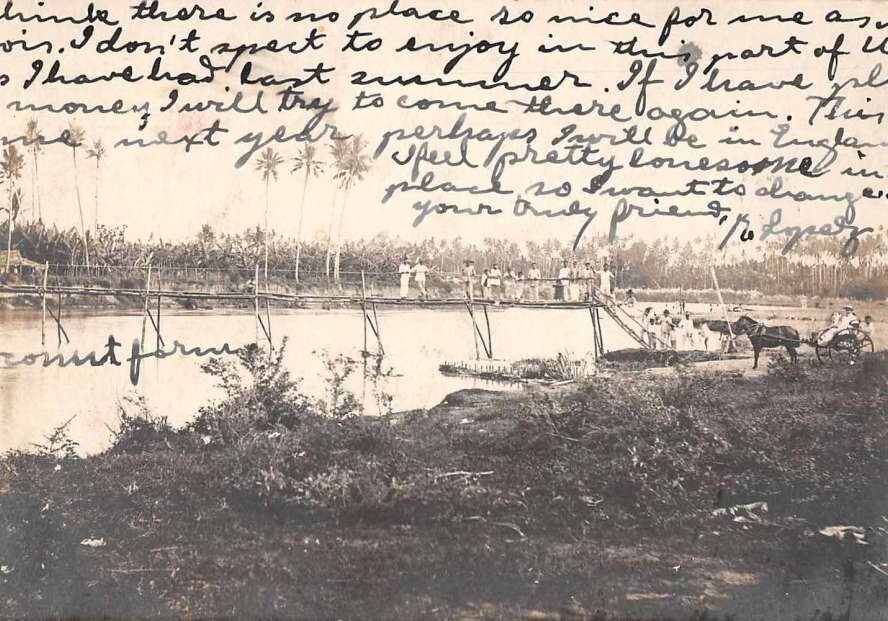 think there is no place so nice for me as
ois. I don't spect to enjoy in this part of th
s I have had last summer. If I have pl
money, I will try to come there again. This
me next year perhaps I will be in Englan
I feel pretty lonesome in
place so I want to change.
your truly friend,
Lopez
oconut farm